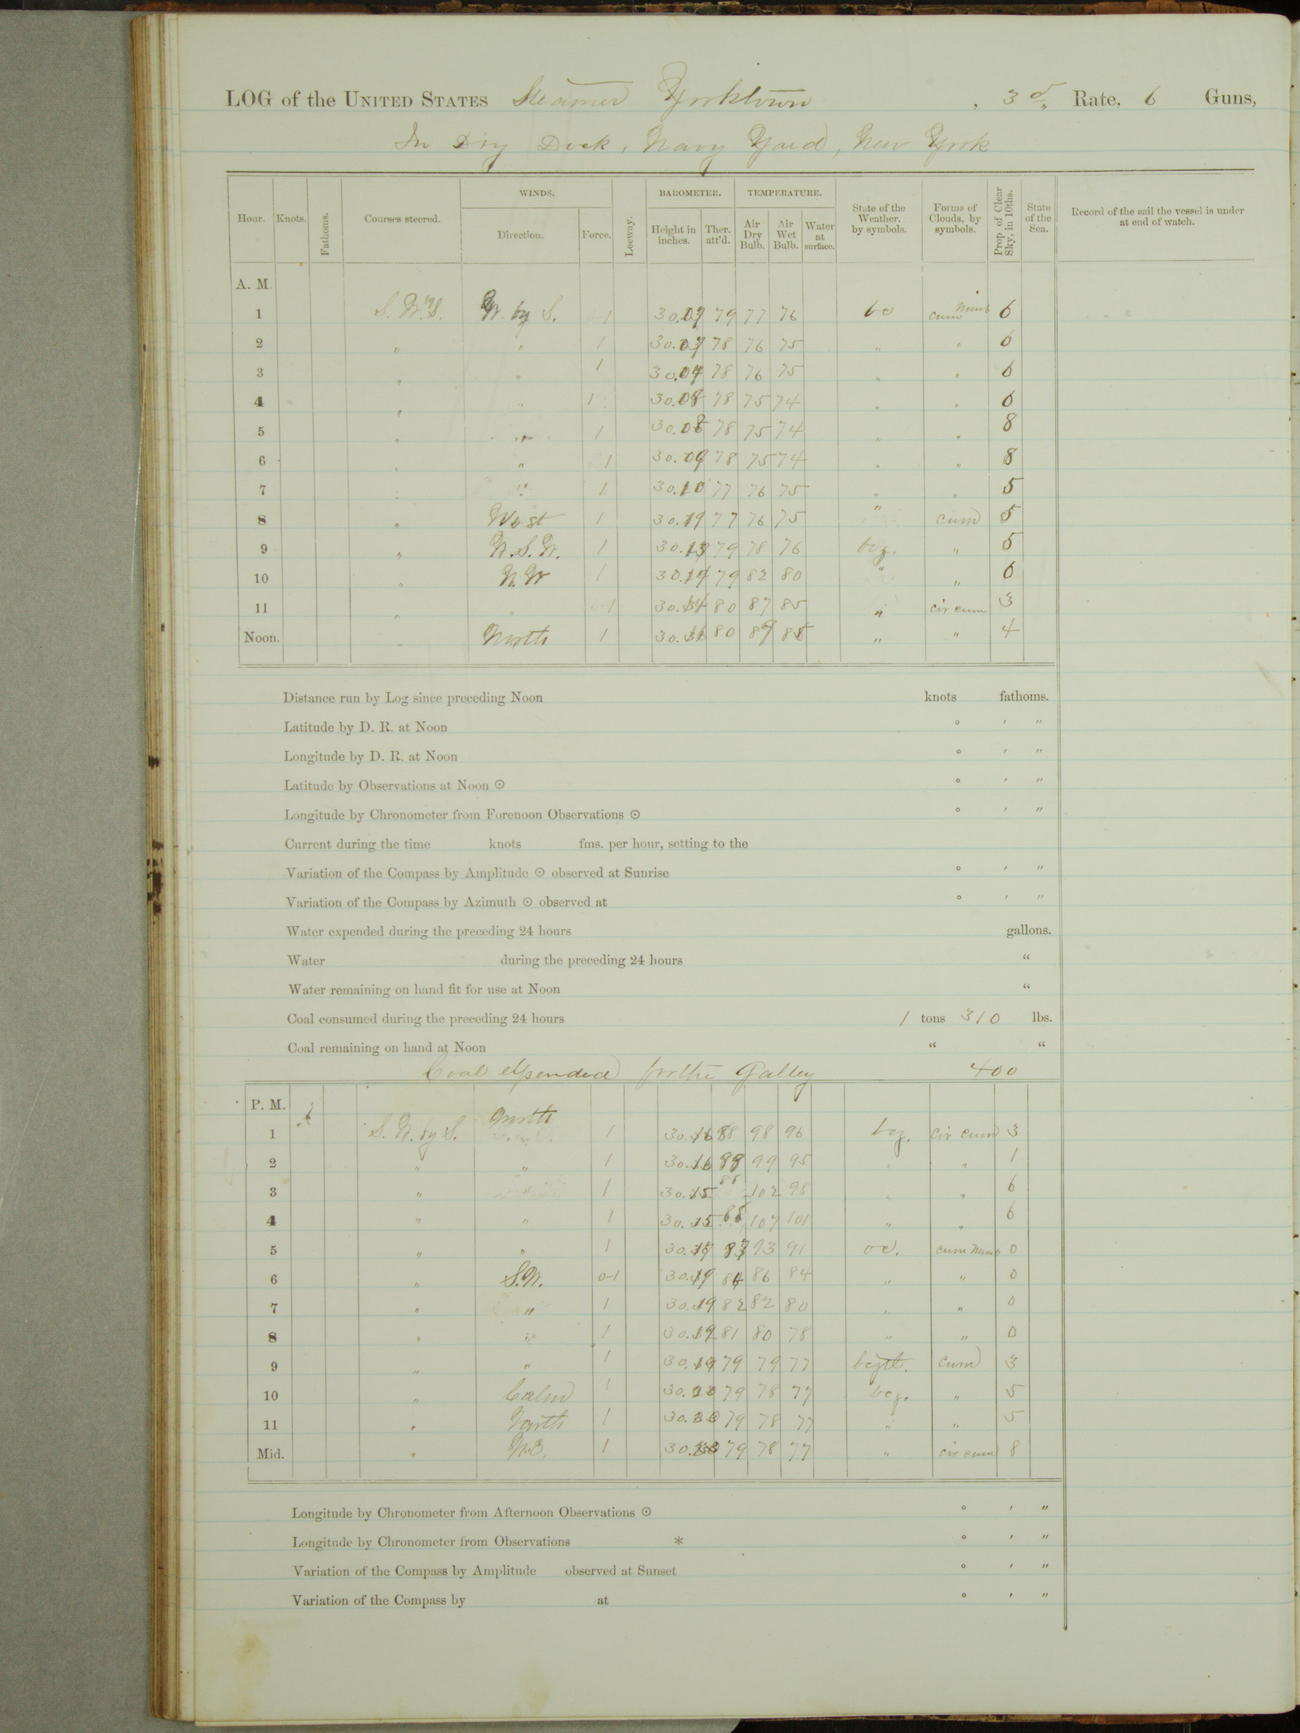 LOG of the UNITED STATES Steamer Yorktown, 3d. Rate, 6 Guns,
In Dry Dock, Navy Yard, New York
Hour. Knots. Fathoms. Courses steered. WINDS. Direction. Force. Leeway. BAROMETER. Height in inches. Ther. att'd. TEMPERATURE. Air Dry Bulb. Air Wet Bulb. Water at surface. State of the Weather, by symbols. Forms of Clouds, by symbols. Prop of Clear Sky, in 10ths. State of the Sea. Record of the sail the vessel is under at end of watch.
A. M.
1 W. by S. 79 77 76 bc cum Nimb 6
2 " " 1 30.07 78 76 75 " " 6
3 " " 1 78 76 75 " " 6
4 " " 1 30.08 78 75 74 " " 6
5 " " 1 30.08 78 75 74 " " 8
6 " " 1 30.09 78 75 74 " " 8
7 " " 1 30.10 77 76 75 " " 5
8 " West 1 77 76 75 " cum 5
9 " W.S.W. 1 30.13 79 78 76 bcz. " 5
10 " N.W 1 79 82 80 " " 6
11 " " 80 87 85 " cir cum 3
Noon. " North 1 80 " " 4
Distance run by Log since preceding Noon knots fathoms.
Latitude by D. R. at Noon ° ′ ″
Longitude by D. R. at Noon ° ′ ″
Latitude by Observations at Noon ☉ ° ′ ″
Longitude by Chronometer from Forenoon Observations ☉ ° ′ ″
Current during the time knots fms. per hour, setting to the
Variation of the Compass by Amplitude ☉ observed at Sunrise ° ′ ″
Variation of the Compass by Azimuth ☉ observed at ° ′ ″
Water expended during the preceding 24 hours gallons.
Water during the preceding 24 hours "
Water remaining on hand fit for use at Noon "
Coal consumed during the preceding 24 hours 1 tons 310 lbs.
Coal remaining on hand at Noon " "
Coal expended for the Galley 400
P. M.
1 S. W. by S. North 1 30.16 88 98 96 bcz. cir cum 3
2 " " 1 30.16 99 95 " " 1
3 " 1 30.15 88 102 98 " " 6
4 " " 1 30.15 88 107 101 " " 6
5 " " 1 87 93 91 oc. cum Nimb 0
6 " S.W. 0-1 30.19 84 86 84 " " 0
7 " " 1 30.19 82 82 80 " " 0
8 " " 1 30.19 81 80 78 " " 0
9 " " 1 30.19 79 79 77 bcztl. cum 3
10 " Calm 1 30.20 79 78 77 bcz. " 5
11 " North 1 30.20 79 78 77 " " 5
Mid. " 1 79 78 77 " cir cum 8
Longitude by Chronometer from Afternoon Observations ☉ ° ′ ″
Longitude by Chronometer from Observations * ° ′ ″
Variation of the Compass by Amplitude observed at Sunset ° ′ ″
Variation of the Compass by at ° ′ ″